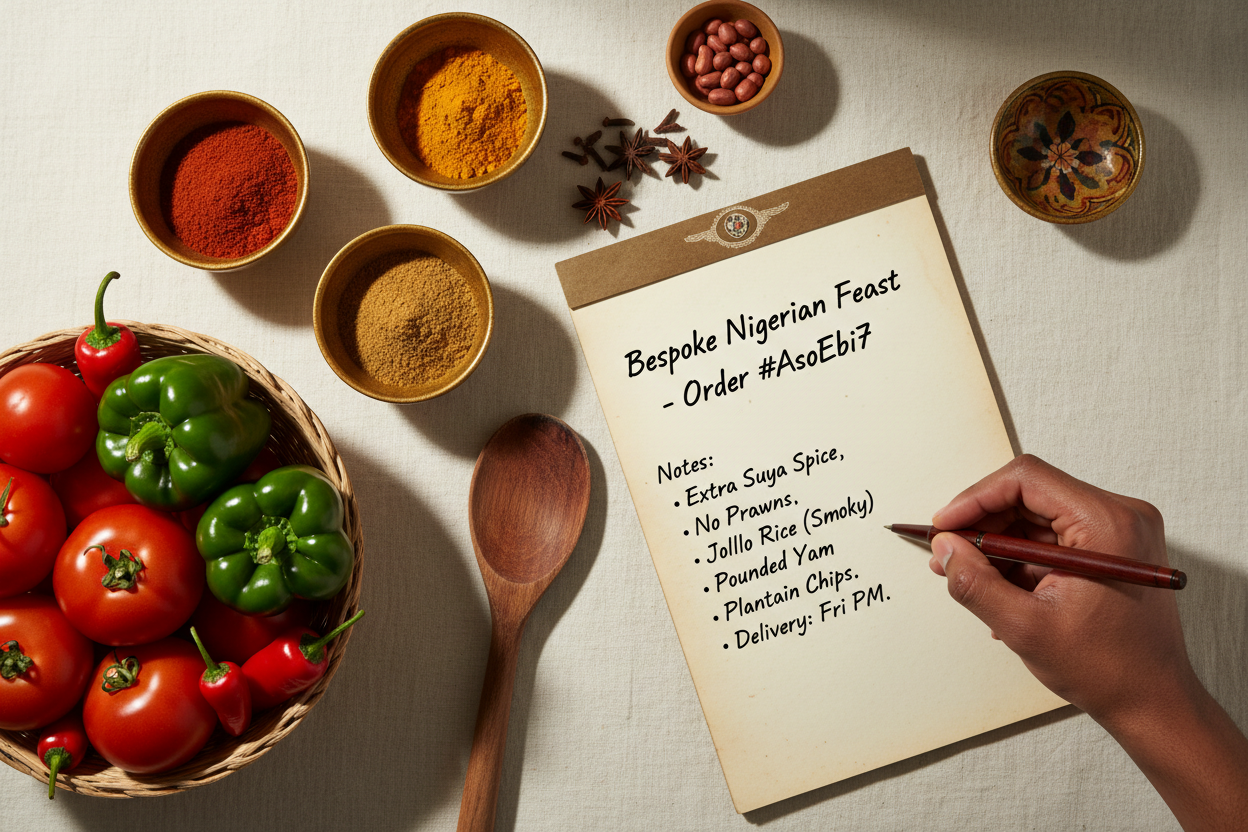 Bespoke Nigerian Feast
- Order #AsoEbi7
Notes:
• Extra Suya Spice,
• No Prawns.
• Jolllo Rice (Smoky)
• Pounded Yam
• Plantain Chips.
• Delivery: Fri PM.